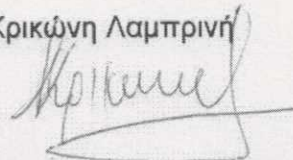 Κρικώνη Λαμπρινή